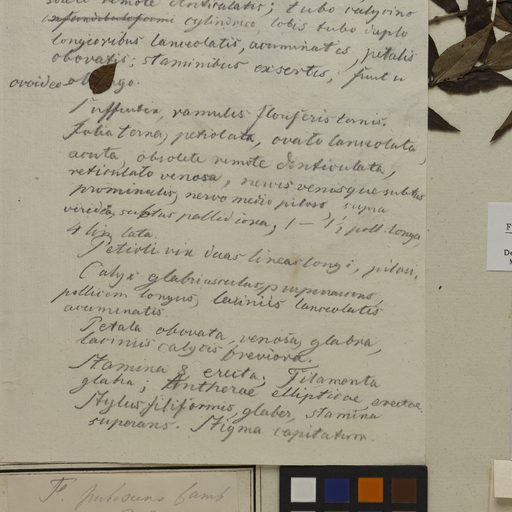 supra remote denticulatis; tubo calycino
infundibuliformi cylindrico, lobis tubo duplo
longioribus lanceolatis, acuminatis, petalis
obovatis; staminibus exsertis; fructu
ovoideo oblongo.
Suffrutex, ramulis floriferis ternis.
Folia terna, petiolata, ovato lanceolata,
acuta, obsolete remote denticulata,
reticulato venosa, nervis venisque subtus
prominulis, nervo medio piloso, supra
viridia, subtus pallidiora, 1 — 1 1/2 poll. longa
4 lin. lata.
Petioli vix duas lineas longi, pilosi.
Calyx glabriusculus purpurascens,
pollicem longus, laciniis lanceolatis
acuminatis.
Petala obovata, venosa, glabra,
laciniis calycis breviora.
Stamina 8 erecta; Filamenta
glabra; Antherae ellipticae, erectae.
Stylus filiformis, glaber, stamina
superans. Stigma capitatum.
F. pubescens Camb
F
De